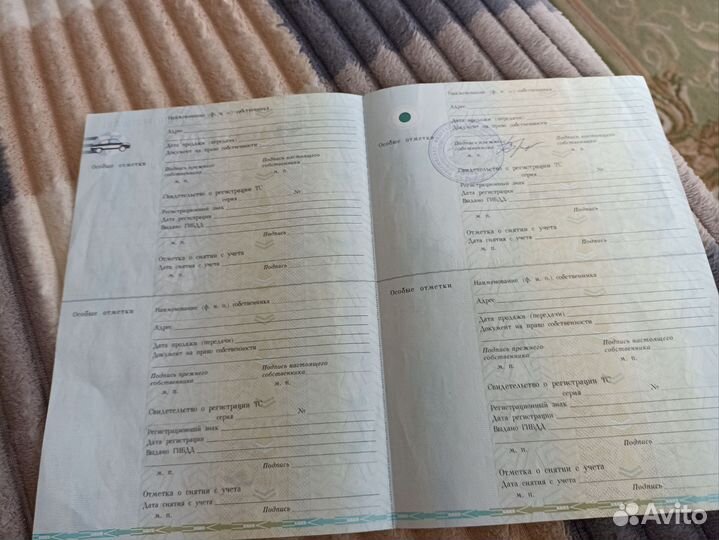 Особые отметки
Наименование (ф. и. о.) собственника
Адрес
Дата продажи (передачи)
Документ на право собственности
Подпись прежнего собственника
Подпись настоящего собственника
м. п.
м. п.
Свидетельство о регистрации ТС
серия №
Регистрационный знак
Дата регистрации
Выдано ГИБДД
м. п. Подпись
Отметка о снятии с учета
Дата снятия с учета
м. п. Подпись
Особые отметки
Наименование (ф. и. о.) собственника
Адрес
Дата продажи (передачи)
Документ на право собственности
Подпись прежнего собственника
Подпись настоящего собственника
м. п.
м. п.
Свидетельство о регистрации ТС
серия №
Регистрационный знак
Дата регистрации
Выдано ГИБДД
м. п. Подпись
Отметка о снятии с учета
Дата снятия с учета
м. п. Подпись
Особые отметки
Наименование (ф. и. о.) собственника
Адрес
Дата продажи (передачи)
Документ на право собственности
Подпись прежнего собственника
Подпись настоящего собственника
м. п.
м. п.
Свидетельство о регистрации ТС
серия №
Регистрационный знак
Дата регистрации
Выдано ГИБДД
м. п. Подпись
Отметка о снятии с учета
Дата снятия с учета
м. п. Подпись
Особые отметки
Наименование (ф. и. о.) собственника
Адрес
Дата продажи (передачи)
Документ на право собственности
Подпись прежнего собственника
Подпись настоящего собственника
м. п.
м. п.
Свидетельство о регистрации ТС
серия №
Регистрационный знак
Дата регистрации
Выдано ГИБДД
м. п. Подпись
Отметка о снятии с учета
Дата снятия с учета
м. п. Подпись
Avito